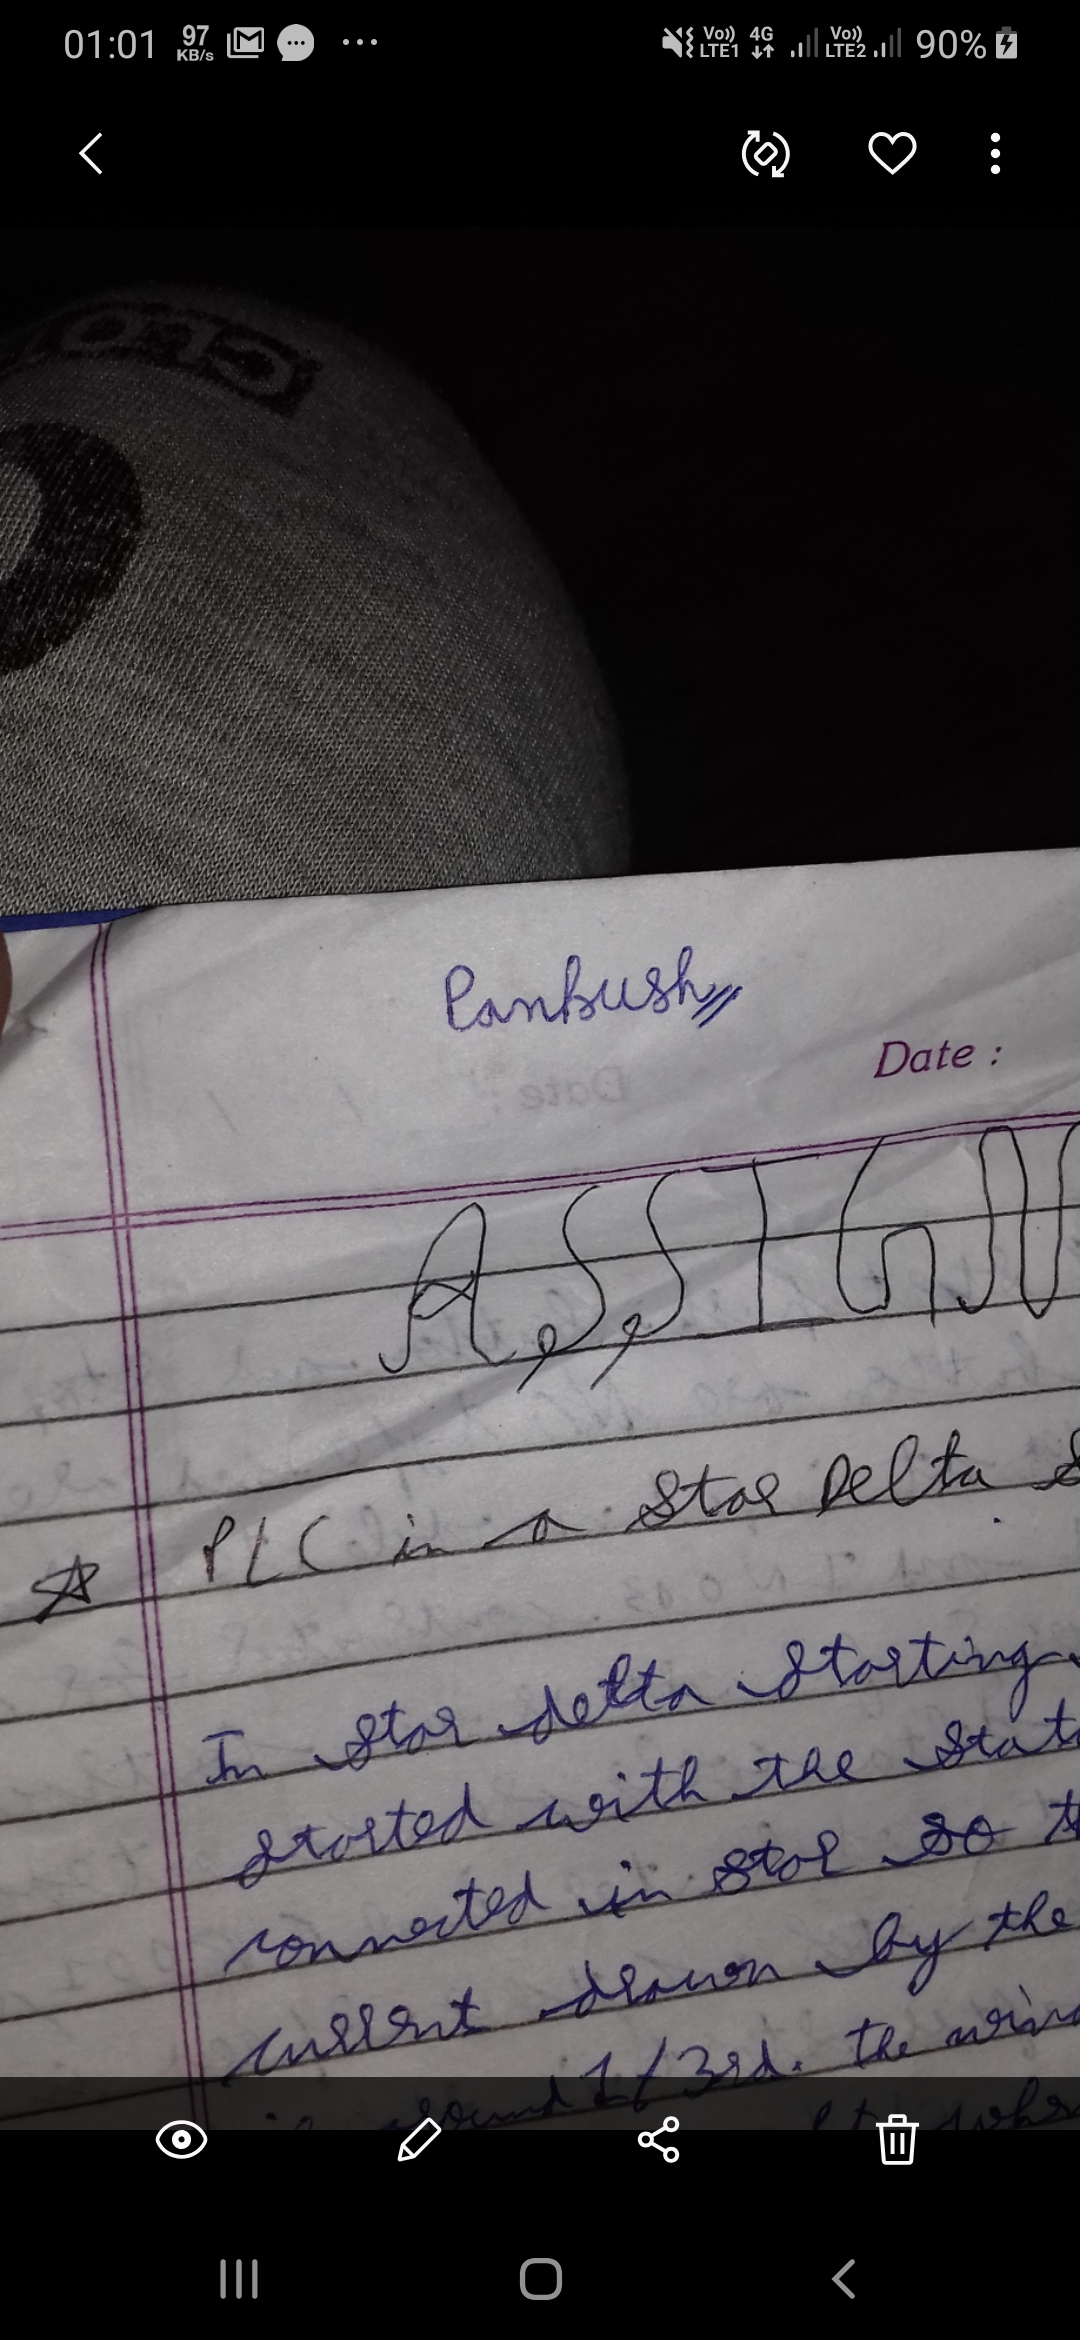 01:01 97 KB/s ... Vo)) LTE1 4G Vo)) LTE2 90%
Panbush
Date :
ASSIGN
PLC in a Star Delta S
In Star delta starting
started with the Stat
connected in star so t
current drawn by the
is around 1/3rd. the wind